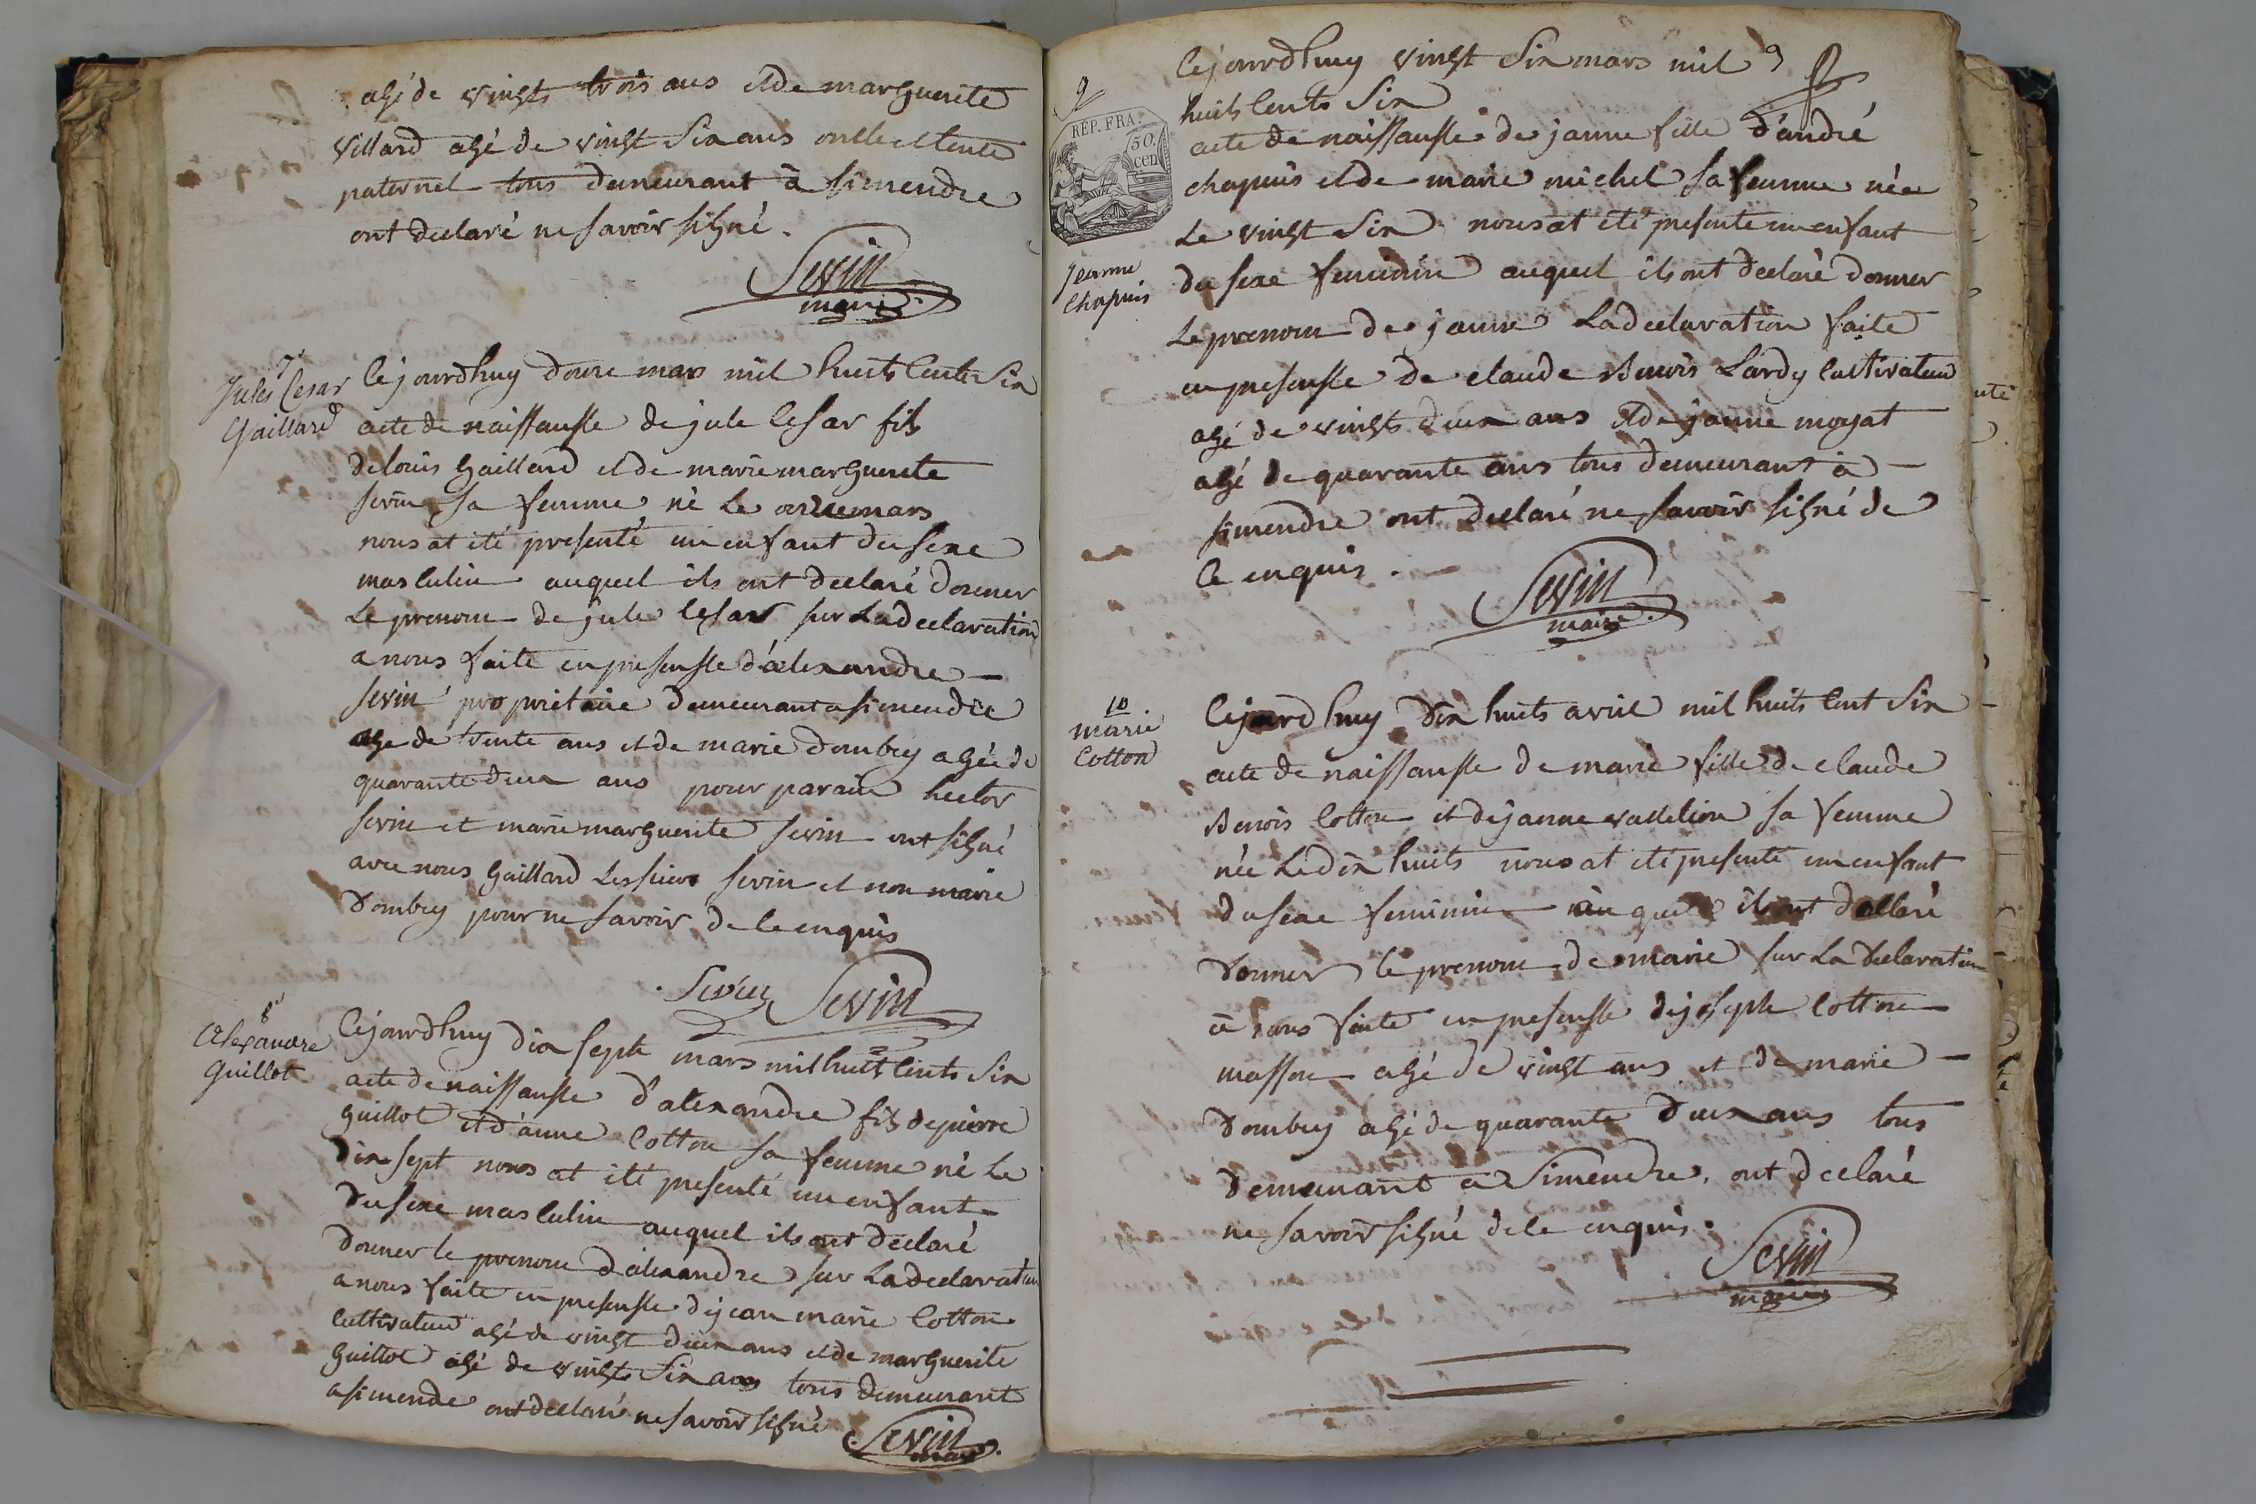 agé de vingts trois ans et de marguerite
villard agé de vingt six ans oncle et tente
paternel tous demeurant à simendre
ont declaré ne savoir signé.
Sevin
maire
7
Jules Cesar
Gaillard
Cejourdhuy douze mars mil huits Cents Six
acte de naissansse de jule Cesar fils
de louis Gaillard et de marie marguerite
sevin sa femme né Le onze mars
nous at été presenté un enfant du sexe
masculin auquel ils ont declaré donner
Le prenom de jule Cesar sur La declaration
a nous faite en presensse d'alexandre
sevin propriétaire demeurant a simendre
age de trente ans et de marie dombey agée de
quarante deux ans pour parain hector
sevin et marie marguerite sevin ont signé
avec nous Gaillard Les sieurs sevin et non marie
dombey pour ne savoir de ce enquis
Sevin Sevin
8
Alexandre
Guillot
Cejourdhuy dix septe mars mil huit Cents Six
acte de naissansse d'alexandre fils de pierre
Guillot et d'anne Cotton sa femme né Le
dix sept nous at été presenté un enfant
du sexe masculin auquel ils ont declaré
donner le prenom d'alexandre sur La declaration
a nous faite en presensse de jean marie Cotton
Cultivateur agé de vingt deux ans et de marguerite
Guillot agé de vingts Six ans tous demeurant
a simendre ont declaré ne savoir signé
Sevin
maire
9
REP. FRA.
50.
cen
Jeanne
Chapuis
Cejourdhuy vingt Six mars mil 9
huits Cents Six
acte de naissansse de janne fille d'andré
chapuis et de marie michel sa femme née
Le vingt Six nous at été presente un enfant
du sexe feminin auquel ils ont declaré donner
Le prenom de janne La declaration faite
en presensse de claude Benois Lardy Cultivateur
agé de vingts deux ans et de janne moyat
agé de quarante ans tous demeurant à
simendre ont declaré ne savoir signé de
Ce enquis.
Sevin
maire
10
marie
Cotton
Cejourdhuy dix huits avril mil huits Cent Six
acte de naissansse de marie fille de claude
Benois Cotton et de janne sa femme
née Le dix huits nous at été presenté un enfant
du sexe feminin auquel ils ont declaré
donner le prenom de marie sur La declaration
à nous faite en presensse de joseph Cotton
masson agé de vingt ans et de marie
dombey agé de quarante deux ans tous
demeurant à Simendre, ont declaré
ne savoir signé de ce enquis.
Sevin
maire